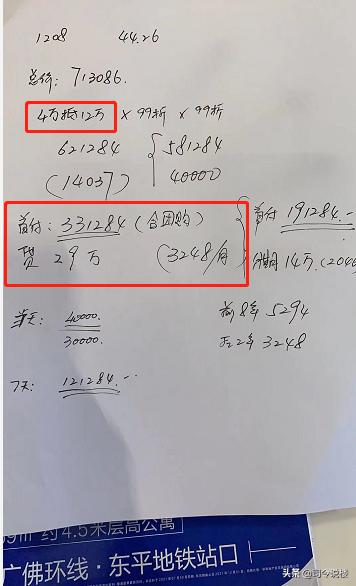 1208 44.26
总价: 713086.
4万抵12万 × 99折 × 99折
621284 { 581284
(14037) 40000
首付: 331284 (含团购) { 首付 191284.-
贷 29万 (3248/月) 分期 14万.(2046
当天: 40000. 前8年 5294
30000. 后22年 3248
7天: 121284.--
约4.5米层高公寓
广佛环线·东平地铁站口
头条@司令说楼